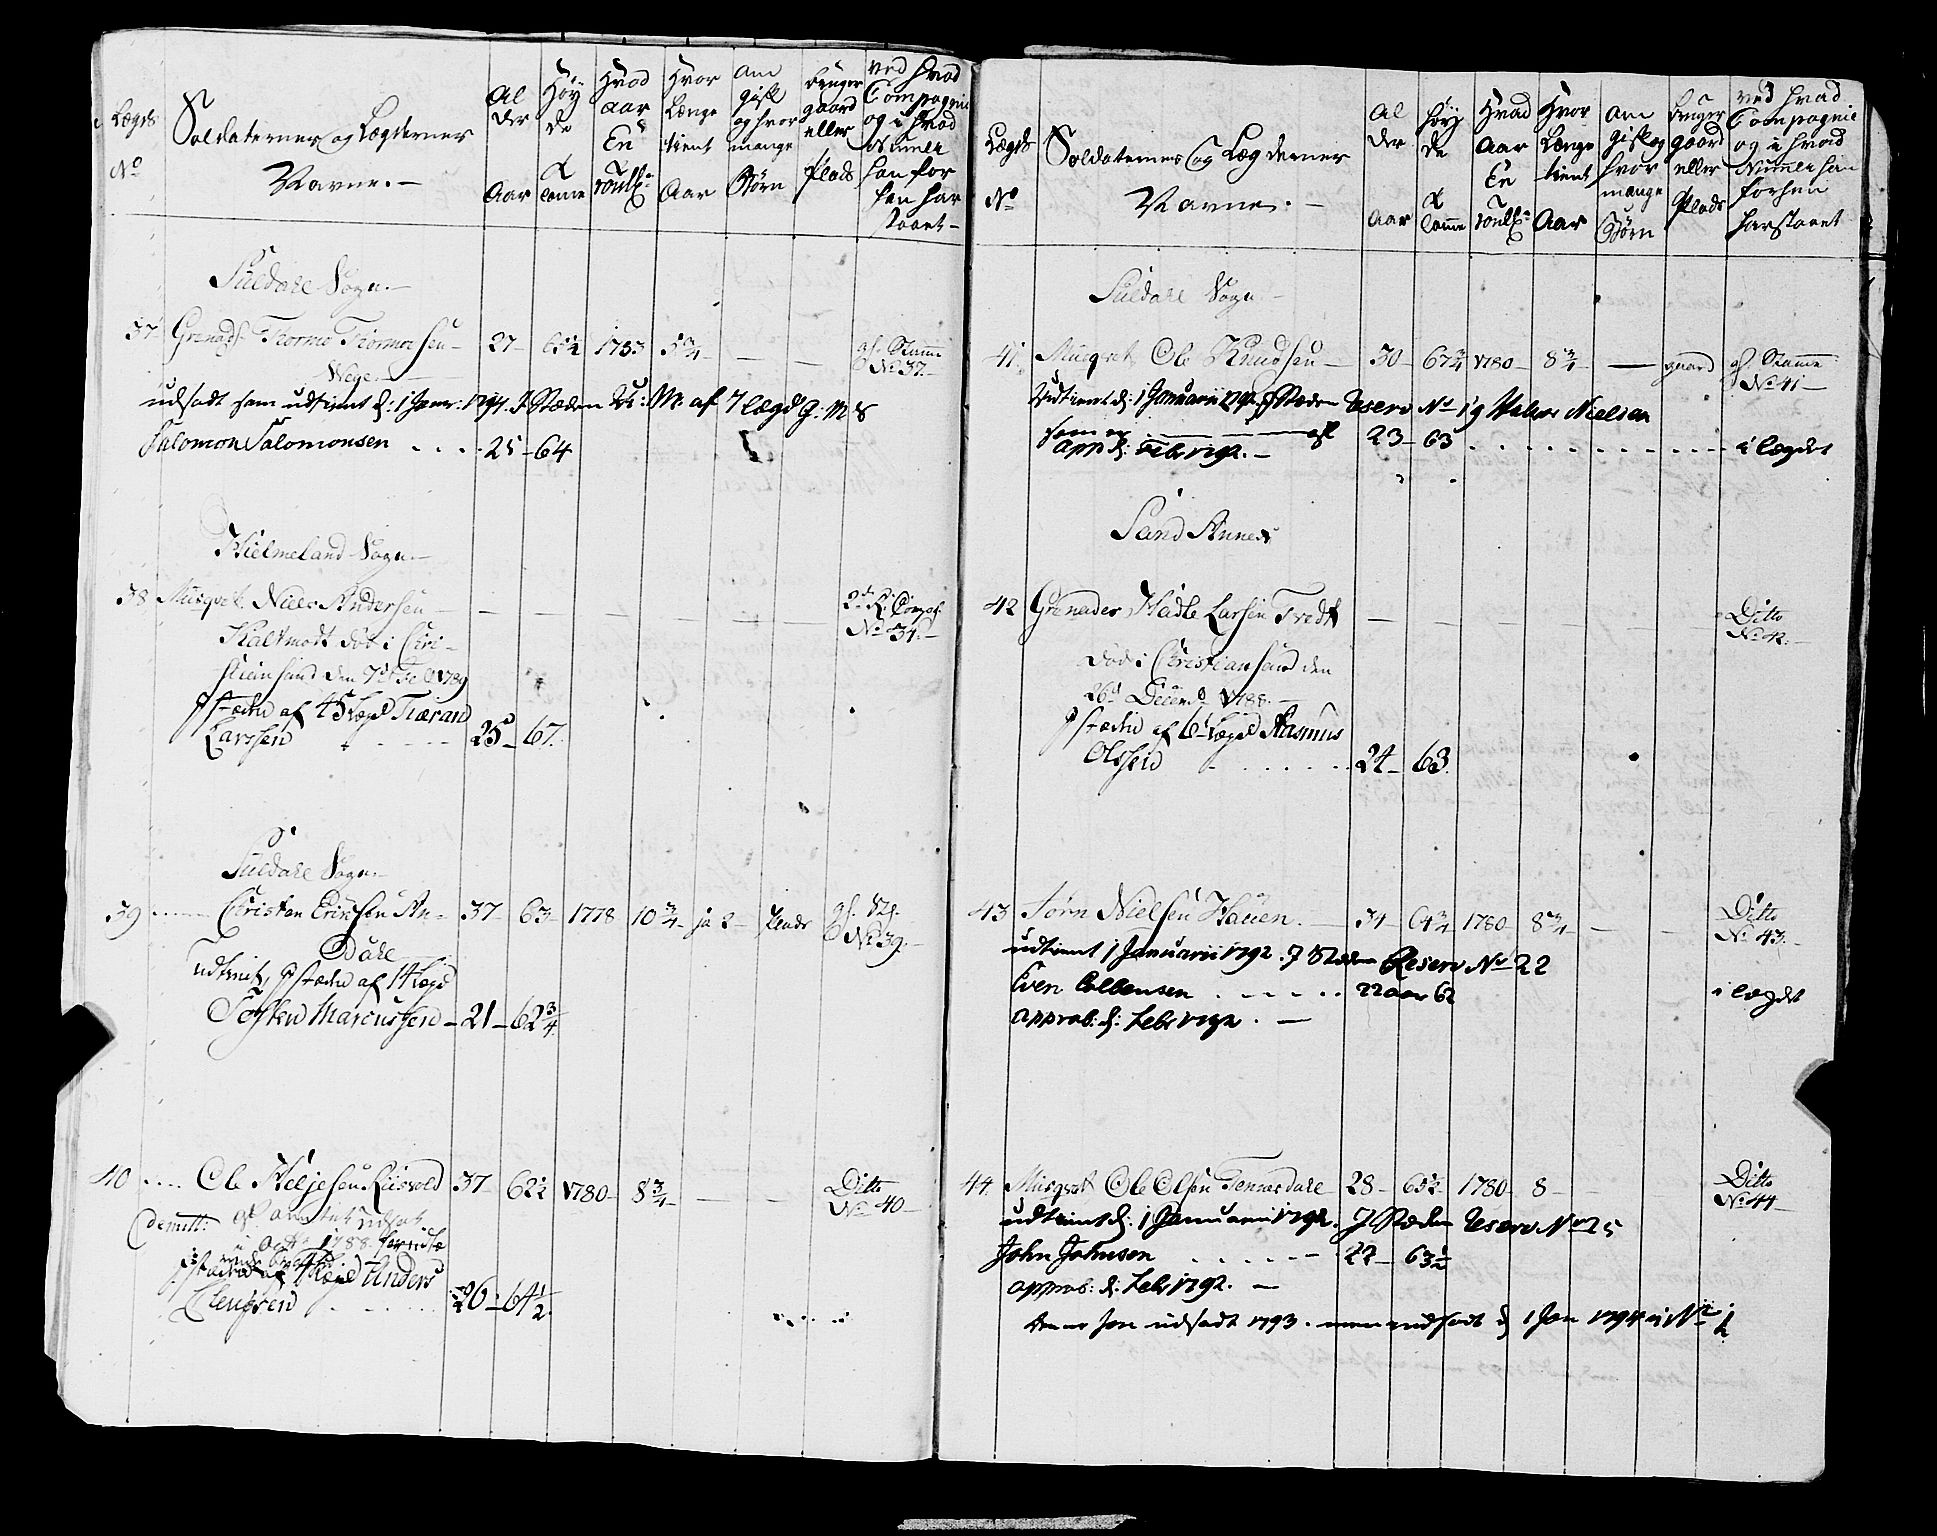 Lægds No
Soldaternes og Lægdernes Navne. –
Al der Aar
Høy de Tomme
Hvad aar En roull:
Hvor Længe tient Aar
Om gift og hvor mange Børn
bruger gaard eller Plads
ved hvad Compagnie og i hvad Numer han for hen har staaet –
Suldahl Sogn. –
37 Grenad: Thormo Thormosen – 27 – 65½ 1783 5¾ – – – gl. Stamme
Wege. – No 37. –
udsadt som udtient d: 1 Janr: 1794. I Stæden af 7 lægd G: M: S
Salomon Salomonsen . . . . 25 – 64
Hielmeland Sogn. –
38 Musqvet. Niels Andersen – – – – – – – 2d
Kaltvedt død i Chri- No 34. –
stiansand den 7de 1789
I stædet af 45 Lægd Tiæran
Larssen . - - - - 25 – 67.
Suldahl Sogn. –
39 . . . . . Christen Erichsen An- 37 – 63 – 1778 10¾ – ja 2 – plads gl.
Dahl No 39. –
udtient, I stædet af 14 Lægd
Tosten Marcussen – 21 – 62¾.
40 . . . . Ole Heljesen Riisvold 37 – 62½ 1780 – 8¾ – – – Ditto
No 40 –
Demitt:
1788
I stædet af Lægd Anders
26 – 64½.
Lægds No
Soldaternes og Lægdernes Navne. –
Al der Aar
høy de Tomme
Hvad Aar En roull:
Hvor Længe tient Aar
Om gift og hvor mange Børn
bruger gaard eller Plads
ved hvad Compagnie og i hvad Numer han forhen har staaet
Suldahl Sogn –
41. Musqvet Ole Knudsen – 30 – 67¾ 1780 – 8¾ – – gaard gl. Stamme
No 41 –
Udtient d: 1 Januarii 1792. I Stæden Reserv No 19 Halvor Nielsen
som er – – – – gl 23 – 63 . . . . . . . . . . . i lægdet
app d: Febr 1792. –
Sand Annex
42 Grenader Hadle Larsen Tvedt – – – – – – Ditto
No 42. –
død i Christiansand den
26d Decembr 1788. –
I stædet af 6te Lægd Rasmus
Olssen - . . . . . . 24 – 63.
43 Jørn Nielsen Hauen. – 34 – 64¾ 1780 – 8¾ – – – Ditto
No 43. –
udtient 1 Januarii 1792. I Stæden Reserv No 22
Even Colbensen . . - - . . 22 aar 62 i lægdet
approb: d: Febr 1792 . –
44. Musqvet Ole Olsen Tennesdahl 28 – 65½ – 1780 – 8 – – Ditto
No 44 –
udtient d: 1 Januarii 1792. I Stæden Reserv No 25
John Johnsen . . . . . - – 22 – 63½
approb: d: Febr 1792. –
udsadt 1793. men udsadt d 1 Jan 1794 No